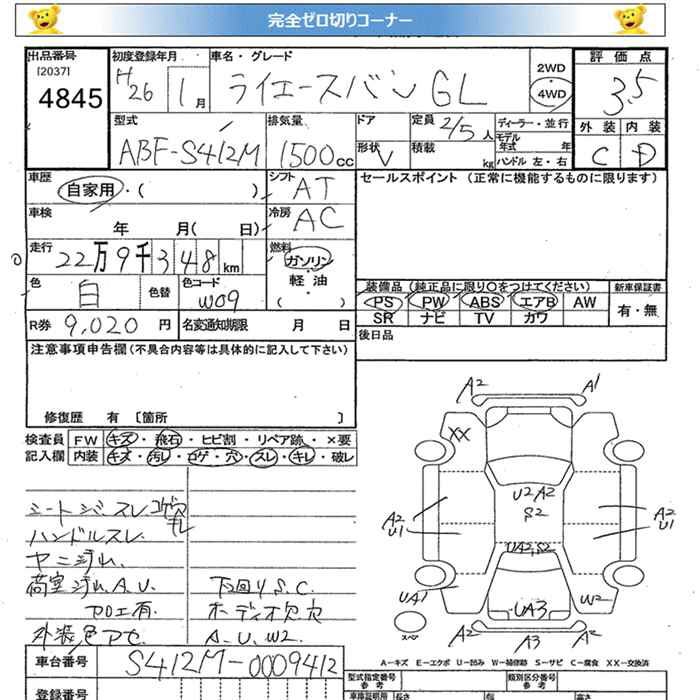 完全ゼロ切りコーナー
出品番号 [2037] 4845
初度登録年月 H26 1月
車名・グレード ライエースバン GL
2WD 4WD
評価点 3.5
外装 C 内装 D
型式 ABF-S412M
排気量 1500cc
ドア 形状 V
定員 2/5人
積載 kg
ディーラー・並行
モデル年式 年
ハンドル 左・右
車歴 自家用・( )
シフト AT
セールスポイント (正常に機能するものに限ります)
車検 年 月( 日)
冷房 AC
走行 22万9千348km
燃料 ガソリン・軽油 ( )
色 白 色替
色コード W09
装備品 (純正品に限り○をつけてください)
PS PW ABS エアB AW
SR ナビ TV カワ
新車保証書 有・無
R券 9,020円
名変通知期限 月 日
後日品
注意事項申告欄 (不具合内容等は具体的に記入して下さい)
修復歴 有 〔箇所 〕
検査員記入欄
FW キズ・飛石・ヒビ割・リペア跡・×要
内装 キズ・汚レ・コゲ・穴・スレ・キレ・破レ
シートシミ スレ コゲ穴 キレ
ハンドルスレ
ヤニ汚れ
荷室汚れ.A.U.
加工有
外装色アセ
下回りS.C.
オーディオ欠品
A.U.W2.
A2 A1
XX
U2A2
S2
A2
U1
A2
U1
UA2,S2
UA1
W2
UA3
スペア
A2 A3 A2
A-キズ E-エクボ U-凹み W-補修跡 S-サビ C-腐食 XX-交換済
車台番号 S412M-0009412
登録番号
型式指定番号 参考
類別区分番号 参考
車庫証明用 参考
長さ 幅 高さ